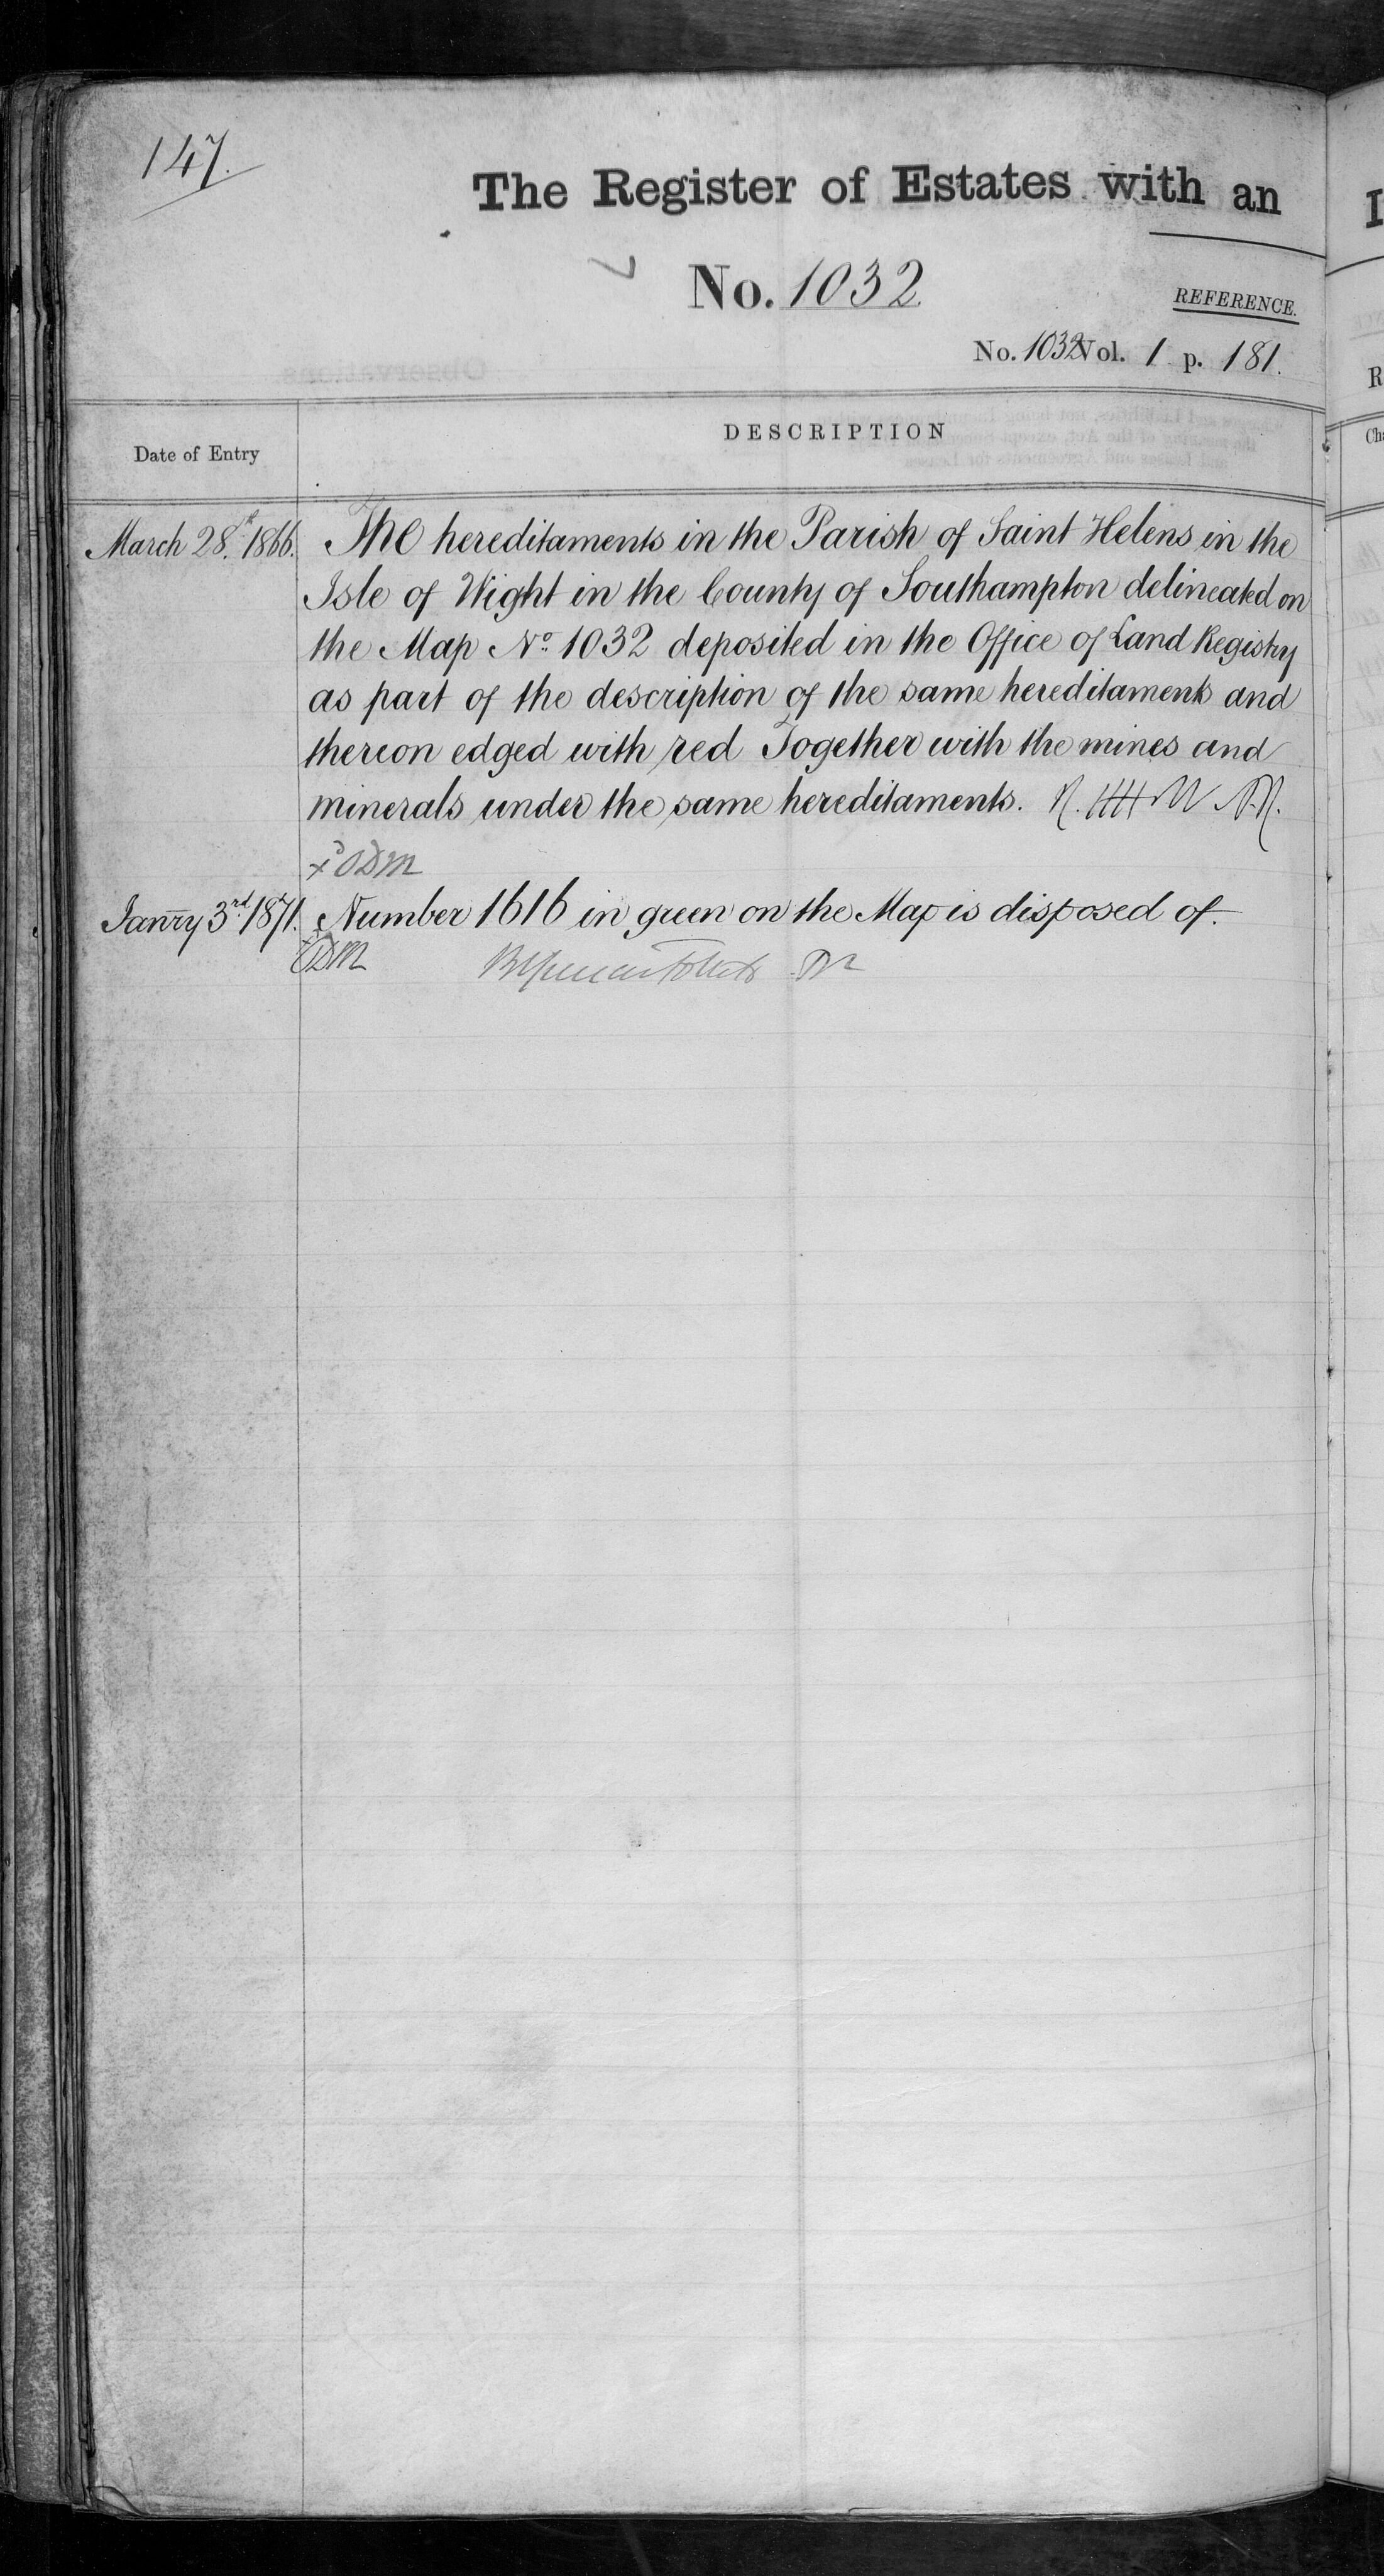 147.
The Register of Estates with an
No. 1032
REFERENCE.
No. 1032 Vol. 1 p. 181.
Date of Entry
DESCRIPTION
March 28th 1866. The hereditaments in the Parish of Saint Helens in the
Isle of Wight in the County of Southampton delineated on
the Map No. 1032 deposited in the Office of Land Registry
as part of the description of the same hereditaments and
thereon edged with red Together with the mines and
minerals under the same hereditaments.
ODM
Janry 3rd 1871. Number 1616 in green on the Map is disposed of.
ODM